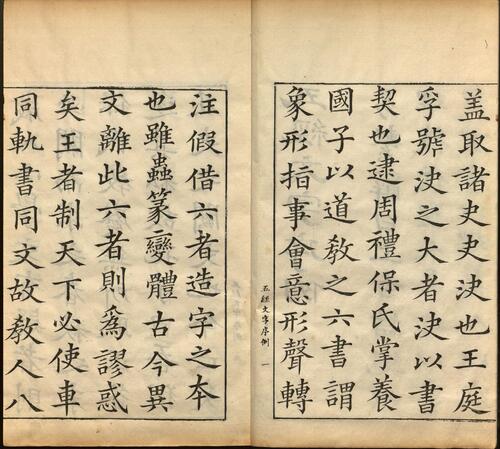 蓋取諸夬夬決也王庭
孚號決之大者決以書
契也逮周禮保氏掌養
國子以道敎之六書謂
象形指事會意形聲轉
五經文字序例 一
注假借六者造字之本
也雖蟲篆變體古今異
文離此六者則爲謬惑
矣王者制天下必使車
同軌書同文故敎人八